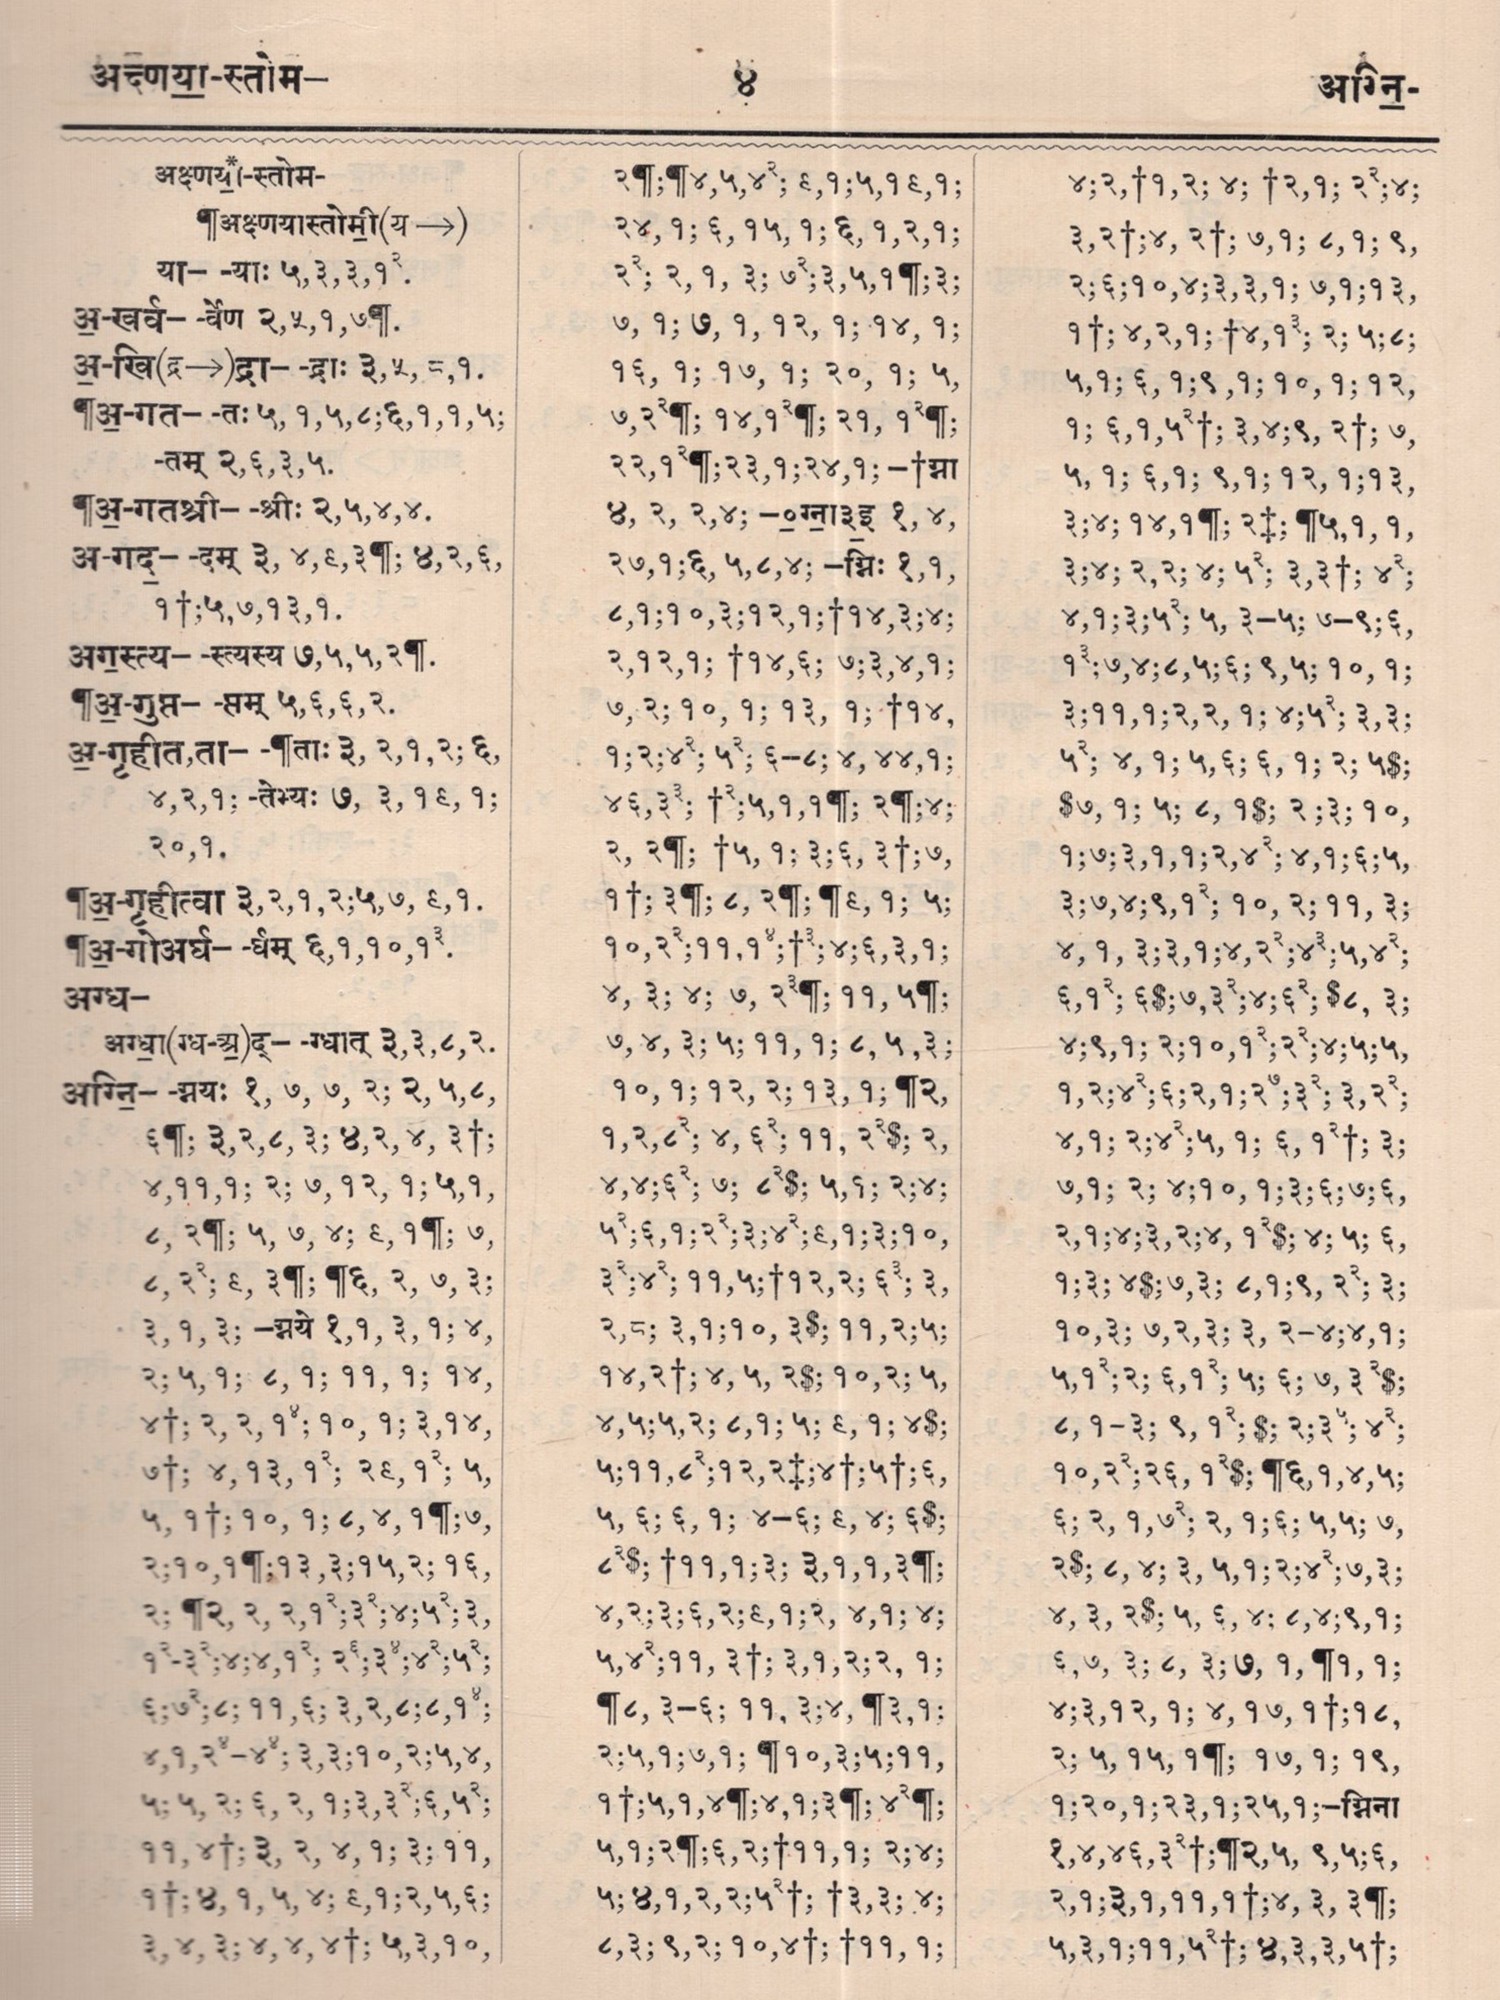 अक्ष्णया॒-स्तोम—
४
अग्नि॒-
अक्ष्णया॒*-स्तोम-
¶अक्ष्णयास्तोमी॒(य→)
या— -याः ५,३,३,१².
अ॒-खर्व— -र्वेण २,५,१,७¶.
अ॒-खि(द्र→)द्रा— -द्राः ३,५,८,१.
¶अ॒-गत— -तः ५,१,५,८;६,१,१,५;
-तम् २,६,३,५.
¶अ॒-गतश्री— -श्रीः २,५,४,४.
अ-गद॒— -दम् ३, ४,९,३¶; ४,२,६,
१†;५,७,१३,१.
अग॒स्त्य— -स्त्यस्य ७,५,५,२¶.
¶अ॒-गुप्त— -प्तम् ५,६,६,२.
अ॒-गृहीत,ता— -¶ताः ३, २,१,२; ६,
४,२,१; -तेभ्यः ७, ३,१९,१;
२०,१.
¶अ॒-गृहीत्वा ३,२,१,२;५,७,९,१.
¶अ॒-गोअर्घ— -र्घम् ६,१,१०,१³.
अग्ध—
अग्धा॒(ग्ध-अ॒)द्— -ग्धात् ३,३,८,२.
अग्नि॒— -ग्नयः १, ७, ७, २; २,५,८,
६¶; ३,२,८, ३; ४,२, ४, ३†;
४,११,१; २; ७,१२, १;५,१,
८, २¶; ५, ७, ४; ९, १¶; ७,
८, २²; ९, ३¶; ¶६, २, ७, ३;
३, १, ३; —ग्नये १,१, ३, १; ४,
२; ५,१; ८, १; ११, १; १४,
४†; २, २, १⁴; १०, १; ३,१४,
७†; ४,१३, १²; २९, १²; ५,
५, १†; १०, १; ८, ४, १¶;७,
२;१०,१¶;१३,३;१५,२; १६,
२; ¶२, २, २,१²;३²;४;५²;३,
१²-३²;४;४,१²; २⁶;३⁴;४²;५²;
६;७²;८; ११,६; ३,२,८;८,१⁴;
४,१,२⁴-४⁴; ३,३;१०,२;५,४,
५; ५, २; ६, २, १;३,३²;६,५²;
११,४†; ३, २, ४, १; ३; ११,
१†; ४, १, ५, ४; ९,१;२,५,६;
३, ४, ३; ४, ४, ४†; ५,३,१०,
२¶;¶४,५,४²; ९,१;५,१९,१;
२४, १; ६, १५, १; ६, १,२,१;
२²; २, १, ३; ७²;३,५,१¶;३;
७, १; ७, १, १२, १; १४, १;
१६, १; १७, १; २०, १; ५,
७,२²¶; १४,१²¶; २१, १²¶;
२२,१²¶;२३,१;२४,१; —†ग्ना
४, २, २,४; —०॒ग्ना॒३इ॒ १, ४,
२७,१;६, ५,८,४; —ग्निः १,१,
८,१;१०,३;१२,१;†१४,३;४;
२,१२,१; †१४,६; ७;३,४,१;
७, २; १०, १; १३, १; †१४,
१;२;४²; ५²; ६—८; ४, ४४,१;
४६,३³; †²;५,१,१¶; २¶;४;
२, २¶; †५, १; ३;६, ३†;७,
१†; ३¶; ८, २¶; ¶९, १; ५;
१०,२²;११,१⁴;†³;४;६,३,१;
४, ३; ४; ७, २³¶; ११, ५¶;
७, ४, ३; ५; ११, १; ८, ५ ,३;
१०, १; १२, २; १३, १; ¶२,
१,२,८²; ४, ६²; ११, २²$; २,
४,४;६²; ७; ८²$; ५,१; २;४;
५²;६,१;२²;३;४²;९,१;३;१०,
३²;४²; ११,५;†१२,२; ६³; ३,
२,८; ३,१;१०, ३$; ११,२;५;
१४,२†; ४, ५, २$; १०,२; ५,
४,५;५,२; ८,१; ५; ९, १; ४$;
५;११,८²;१२,२‡;४†;५†;६,
५, ६; ६, १; ४—६; ९, ४; ६$;
८²$; †११,१;३; ३,१,१,३¶;
४,२;३;६,२;९,१;२, ४,१; ४;
५,४²;११, ३†; ३,१,२;२, १;
¶८, ३—६; ११, ३;४, ¶३,१;
२;५,१;७,१; ¶१०,३;५;११,
१†;५,१,४¶;४,१;३¶; ४²¶;
५,१;२¶;६,२;†११,१; २;४;
५; ४,१,२,२;५²†; †३,३; ४;
८,३; ९,२; १०,४†; †११, १;
४;२,†१,२; ४; †२,१; २²;४;
३,२†;४, २†; ७,१; ८,१; ९,
२;६;१०,४;३,३,१; ७,१;१३,
१†; ४,२,१; †४,१³; २; ५;८;
५,१; ६, १;९,१; १०, १; १२,
१; ६,१,५²†; ३,४;९, २†; ७,
५, १; ६,१; ९,१; १२, १;१३,
३;४; १४,१¶; २‡; ¶५,१, १,
३;४; २,२; ४; ५²; ३,३†; ४²;
४,१;३;५²; ५, ३—५; ७—९;६,
१³;७,४;८,५;६; ९,५; १०, १;
३;११,१;२,२, १; ४;५²; ३,३;
५²; ४, १; ५,६; ६, १; २; ५$;
$७, १; ५; ८, १$; २ ;३; १०,
१;७;३,१,१;२,४²; ४,१;६;५,
३;७,४;९,१²; १०, २; ११, ३;
४, १, ३;३,१;४,२²;४³;५,४²;
६,१²; ६$;७,३²;४;६²; $८, ३;
४;९,१; २;१०,१²;२²;४;५;५,
१,२;४²;६;२,१;२⁷;३²; ३,२²;
४,१; २;४²;५, १; ६, १²†; ३;
७,१; २; ४;१०, १;३;६;७;६,
२,१;४;३,२;४, १²$; ४; ५; ६,
१;३; ४$;७,३; ८,१;९, २²; ३;
१०,३; ७,२,३; ३, २-४;४,१;
५,१²;२; ६,१²; ५; ६; ७, ३²$;
८, १-३; ९, १²;$; २;३⁵; ४²;
१०,२²;२६, १²$; ¶६,१,४,५;
६; २, १,७²; २, १;६; ५,५; ७,
२$; ८, ४; ३, ५,१;२;४²;७,३;
४, ३, २$; ५, ६, ४; ८,४;९,१;
६,७, ३; ८, ३;७, १, ¶१, १;
४;३,१२, १; ४, १७, १†;१८,
२; ५, १५, १¶; १७, १; १९,
१;२०,१;२३,१;२५,१;—ग्निना
१,४,४६,३²†;¶२,५, ९,५;६,
२,१;३,१,११,१†;४, ३, ३¶;
५,३,१;११,५²†; ४,३,३,५†;